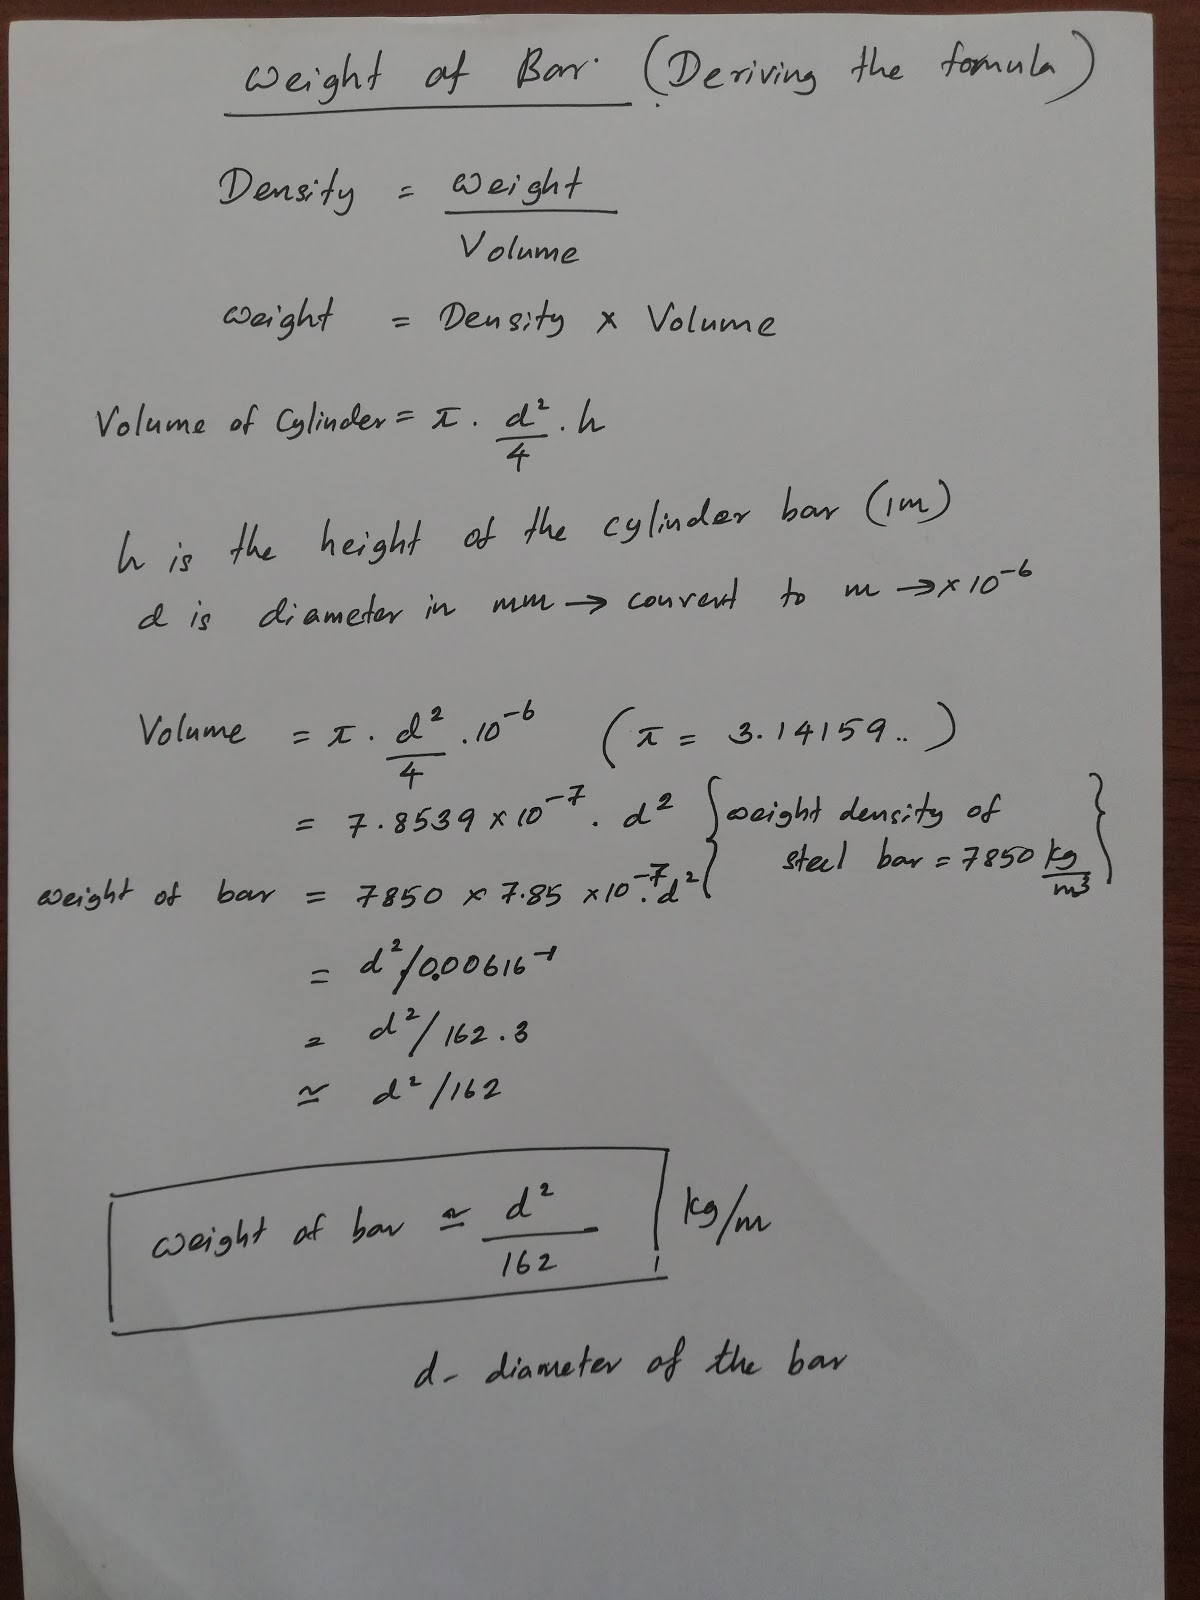 Weight of Bar. (Deriving the formula)
Density = Weight / Volume
Weight = Density × Volume
Volume of Cylinder = π . d²/4 . h
h is the height of the cylinder bar (1m)
d is diameter in mm → convert to m → × 10⁻⁶
Volume = π . d²/4 . 10⁻⁶ (π = 3.14159..)
= 7.8539 × 10⁻⁷ . d² {weight density of
steel bar = 7850 kg/m³}
Weight of bar = 7850 × 7.85 × 10⁻⁷ . d²
= d²/0.00616⁻¹
= d²/162.3
≃ d²/162
Weight of bar ≃ d²/162 kg/m
d - diameter of the bar